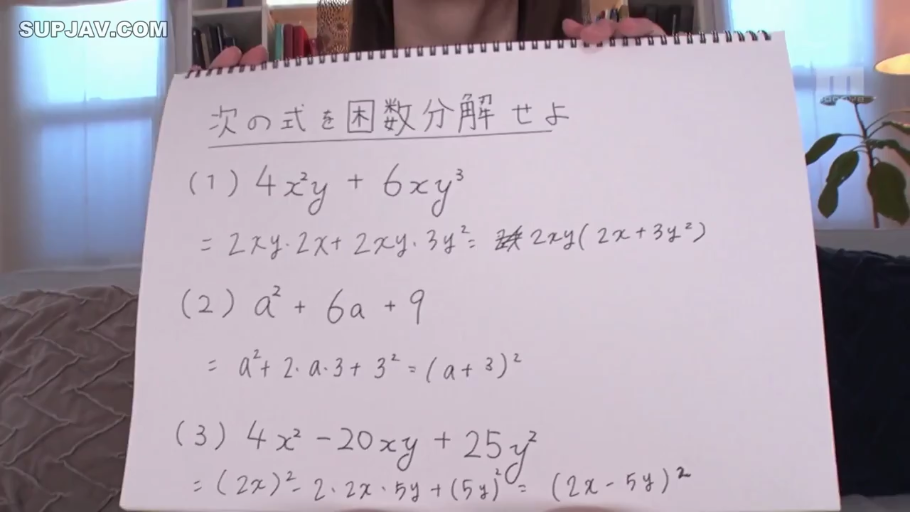 SUPJAV.COM
次の式を因数分解せよ
(1) 4x²y + 6xy³
= 2xy・2x + 2xy・3y² = 2xy(2x+3y²)
(2) a² + 6a + 9
= a² + 2・a・3 + 3² = (a+3)²
(3) 4x² - 20xy + 25y²
= (2x)² - 2・2x・5y + (5y)² = (2x - 5y)²